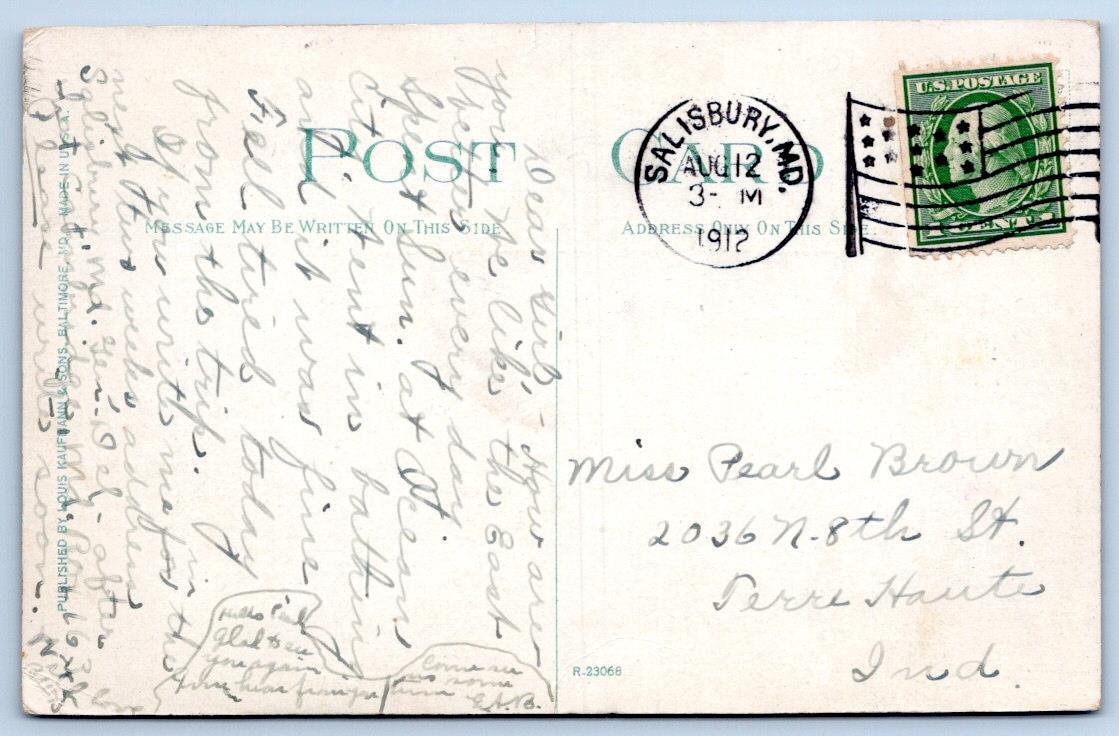 POST CARD
MESSAGE MAY BE WRITTEN ON THIS SIDE
ADDRESS ONLY ON THIS SIDE
SALISBURY, MD.
AUG 12
3- M
1912
U.S. POSTAGE
Miss Pearl Brown
2036 N. 8th St.
Terre Haute
Ind.
R-23068
PUBLISHED BY LOUIS KAUFMANN & SONS, BALTIMORE, MD. MADE IN U.S.A.
Dear Girl - How are
you We like the East
better every day.
Spent Sun. at Ocean
City. Went in bathing
and it was fine
Feel tired today
from the trip.
If you write me for the
next two weeks address in
Salisbury, Md. Gen. Del. after
that
Please write soon.
Hello Pearl
Glad to see
you again
hear from you
Come see
us some
time E.A.B.